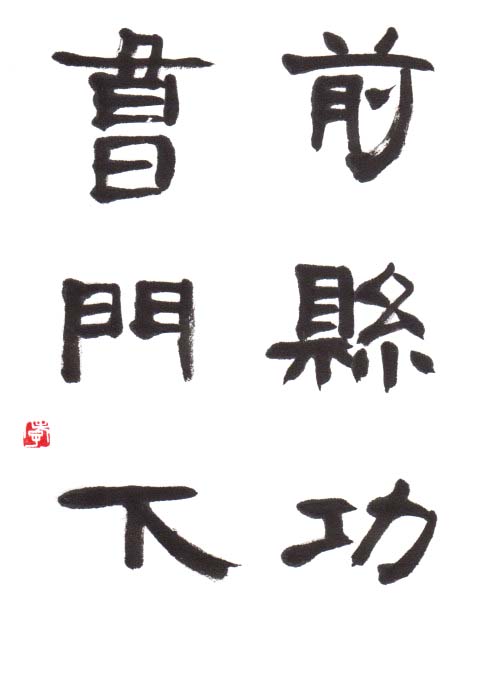 前縣功
書門下